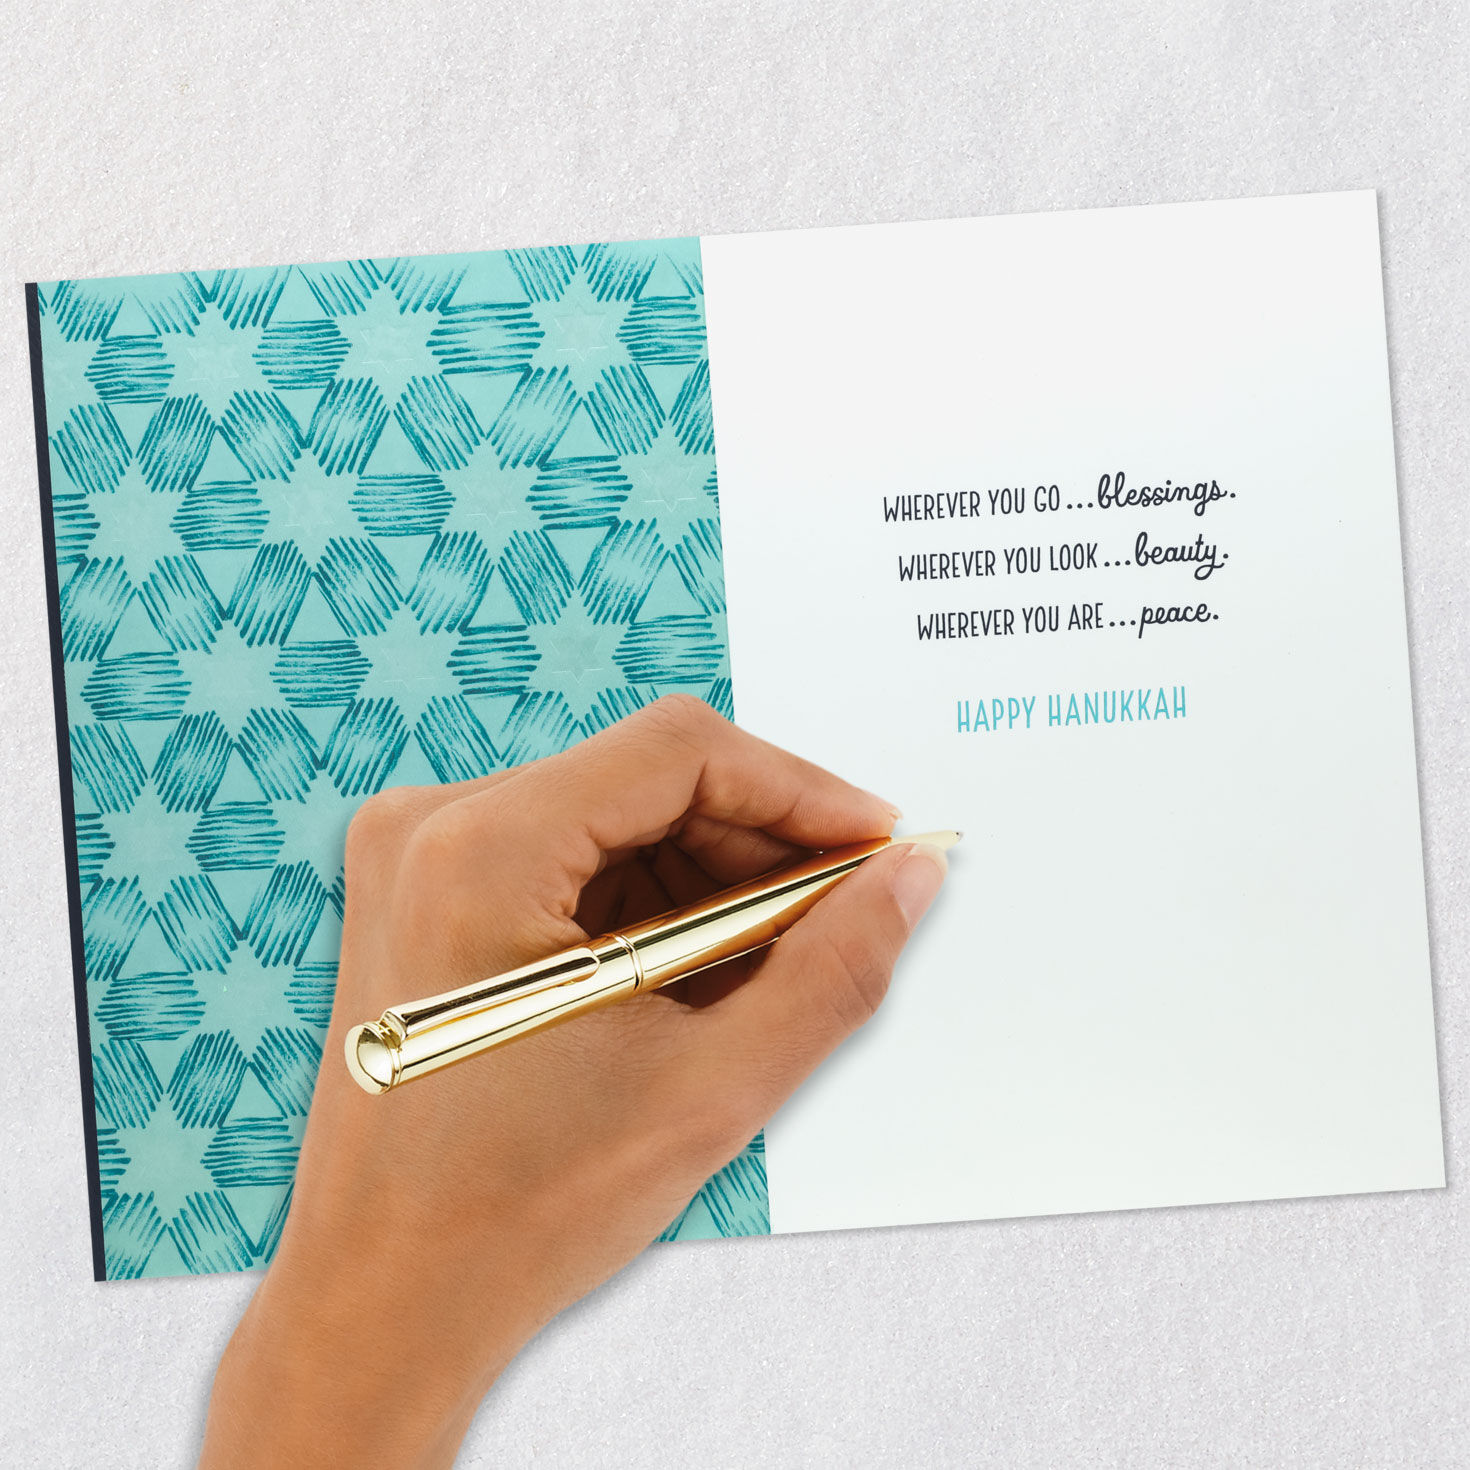 WHEREVER YOU GO...blessings.
WHEREVER YOU LOOK...beauty.
WHEREVER YOU ARE...peace.
HAPPY HANUKKAH